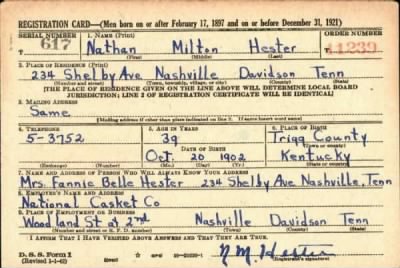 REGISTRATION CARD—(Men born on or after February 17, 1897 and on or before December 31, 1921)
SERIAL NUMBER 1. NAME (Print) ORDER NUMBER
617 Nathan Milton Hester 11239
(First) (Middle) (Last)
2. PLACE OF RESIDENCE (Print)
234 Shelby Ave Nashville Davidson Tenn
(Number and street) (Town, township, village, or city) (County) (State)
[THE PLACE OF RESIDENCE GIVEN ON THE LINE ABOVE WILL DETERMINE LOCAL BOARD
JURISDICTION; LINE 2 OF REGISTRATION CERTIFICATE WILL BE IDENTICAL]
3. MAILING ADDRESS
Same
[Mailing address if other than place indicated on line 2. If same insert word same]
4. TELEPHONE 5. AGE IN YEARS 6. PLACE OF BIRTH
5-3752 39 Trigg County
DATE OF BIRTH (Town or county)
Oct. 20 1902 Kentucky
(Exchange) (Number) (Mo.) (Day) (Yr.) (State or country)
7. NAME AND ADDRESS OF PERSON WHO WILL ALWAYS KNOW YOUR ADDRESS
Mrs. Fannie Belle Hester 234 Shelby Ave Nashville, Tenn
8. EMPLOYER'S NAME AND ADDRESS
National Casket Co
9. PLACE OF EMPLOYMENT OR BUSINESS
Woodland St & 2nd Nashville Davidson Tenn
(Number and street or R. F. D. number) (Town) (County) (State)
I AFFIRM THAT I HAVE VERIFIED ABOVE ANSWERS AND THAT THEY ARE TRUE.
D. S. S. Form 1
(Revised 1-1-42) (over) N M Hester
(Registrant's signature)